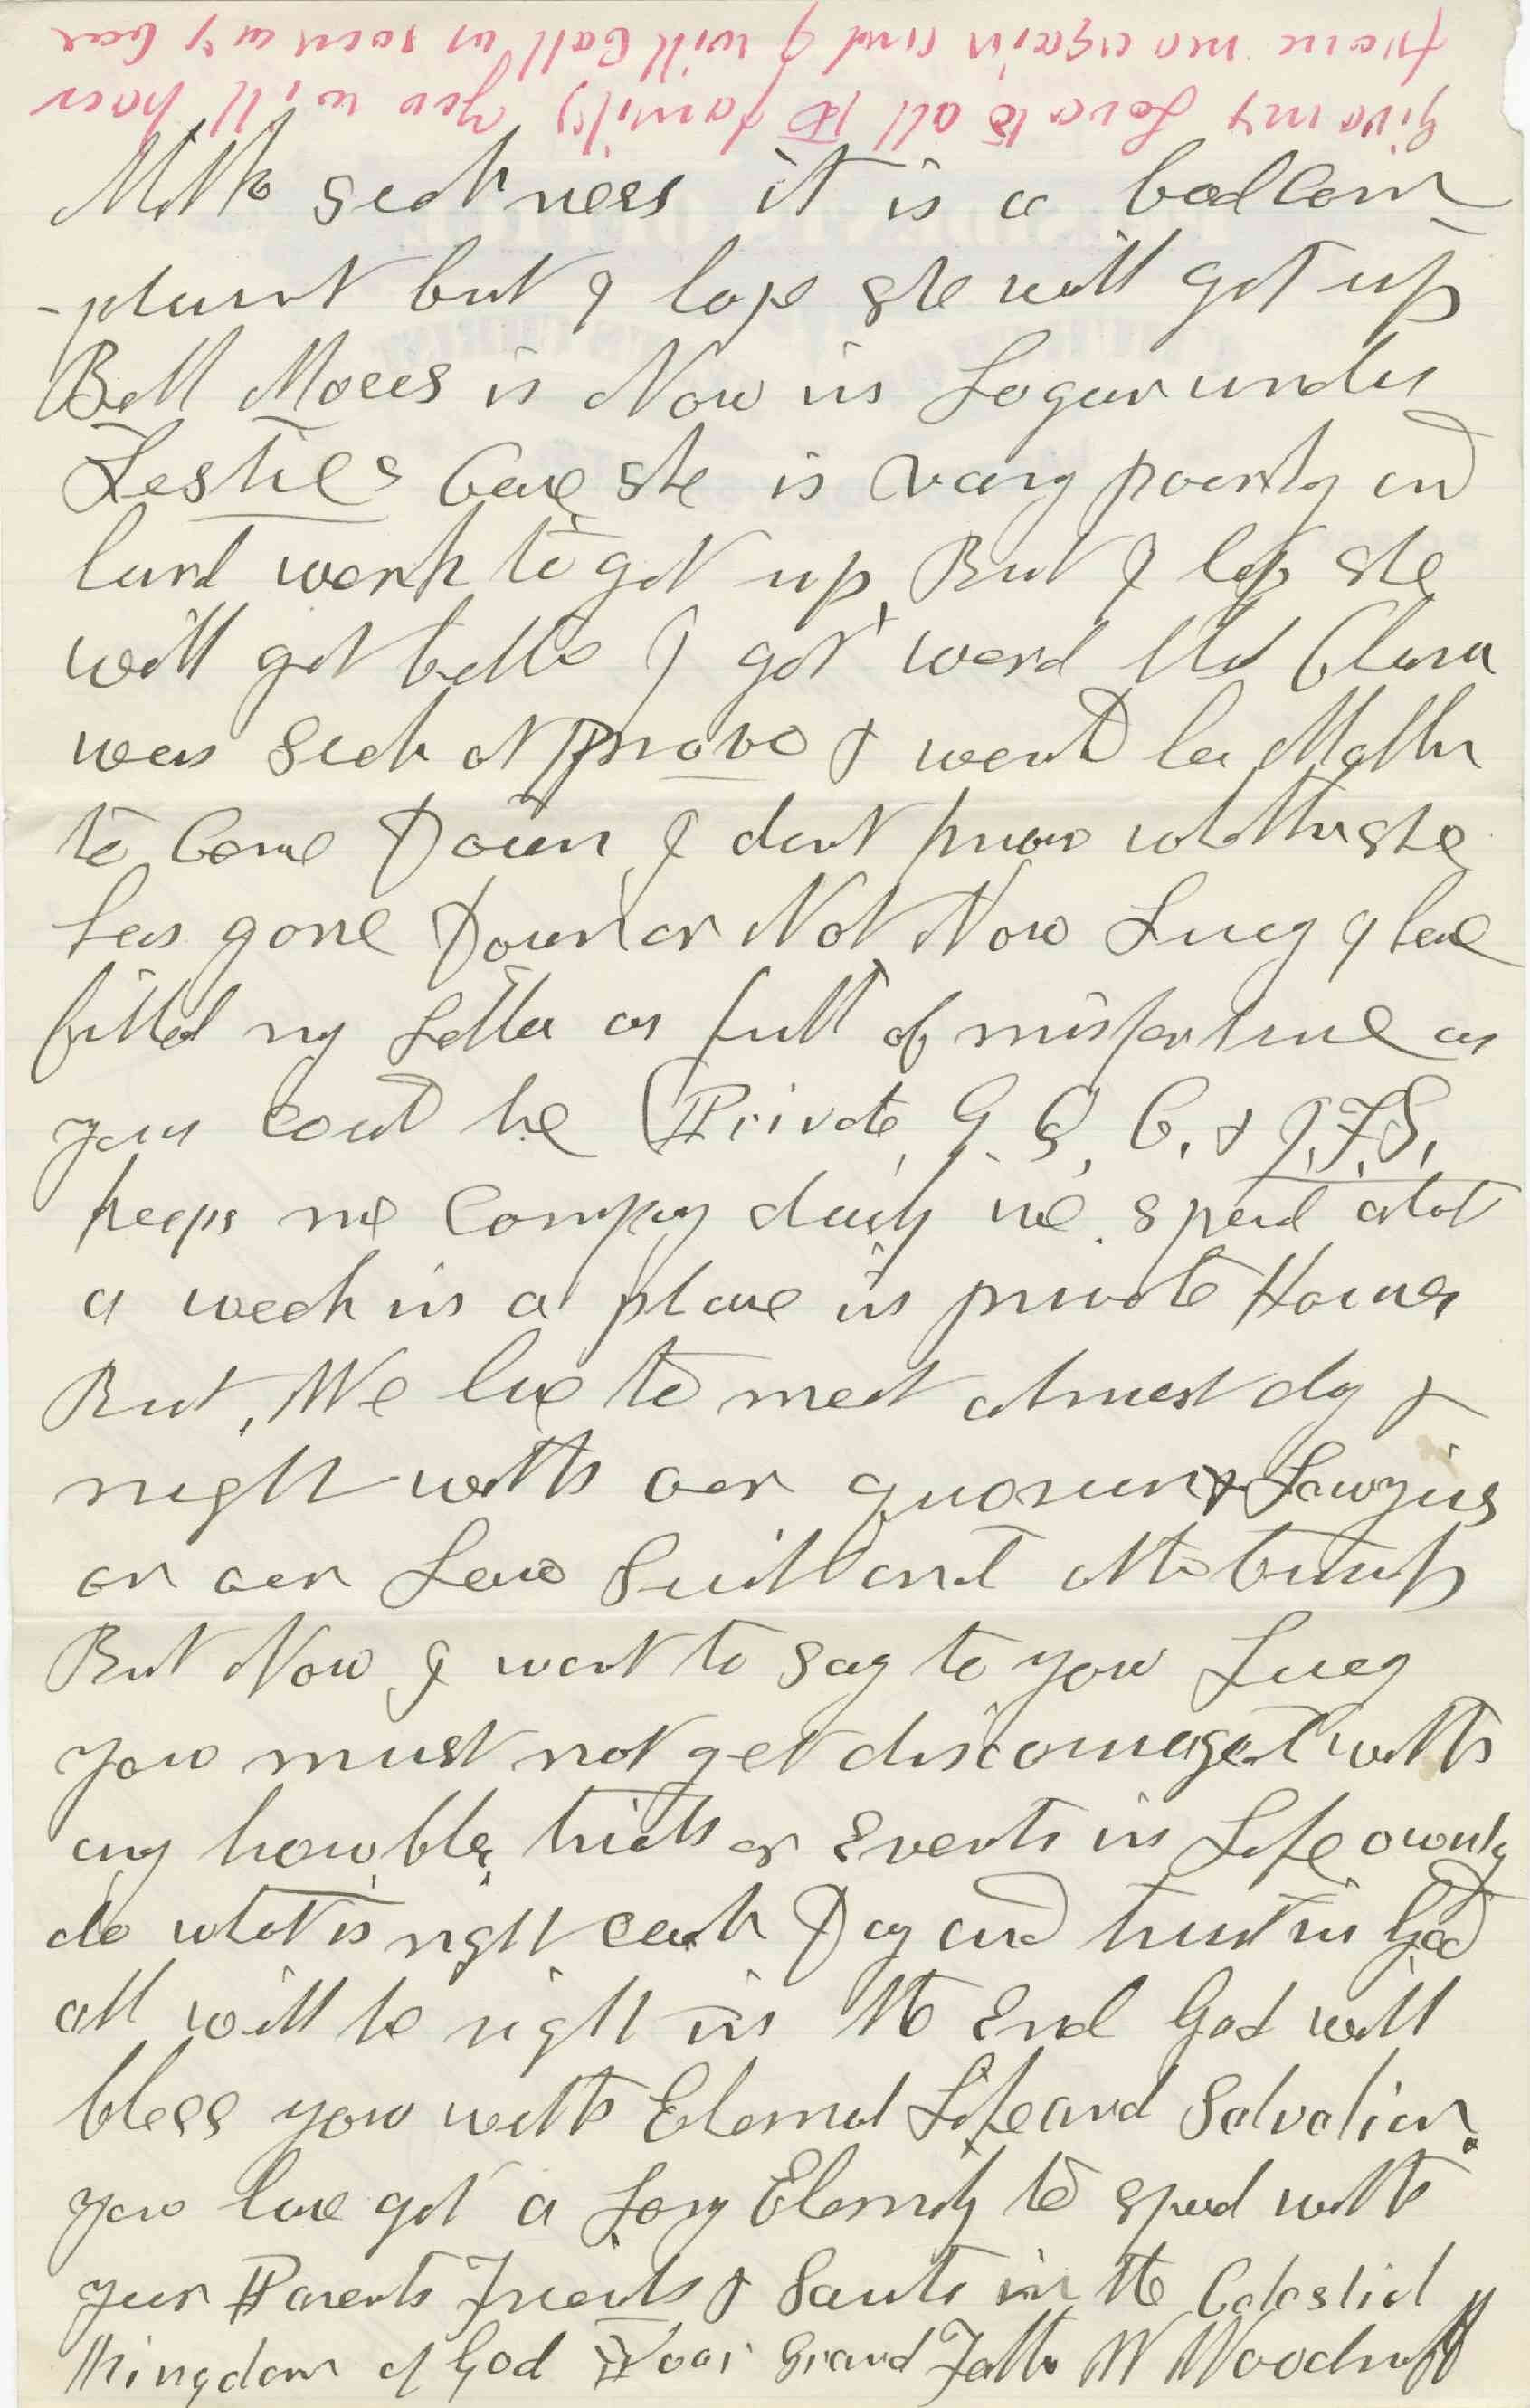 Milk sickness it is a bad com
-plaint but I hope she will get up
Bell Moses is Now in Logan under
Leslies Care she is vary poorly and
hard work to get up But I hope she
will get better I got word that Clara
was sick at Provo & want her Mother
to Come Down I dont know whether she
has gone Down or Not Now Lucy I have
filled my Letter as full of misfortune as
you could be (Private G. Q, C. & J.F.S.
keeps me Company daily we spend about
a week in a place in private Homes
But, We have to meet almost day &
night with our quorum & Lawyers
on our Law Suit and other business
But Now I want to say to you Lucy
you must not get discouraged with
any horrible, trials or Events in Life ownly
do what is right each Day and trust in God
all will be right in the End God will
bless you with Eternal Life and Salvation.
you have got a Long Eternity to spend with
your Parents Friends & Saints in the Celestial
Kingdom of God Your Grand Father W Woodruff
Give my Love to all the family you will hear
from me again and I will Call as soon as I can